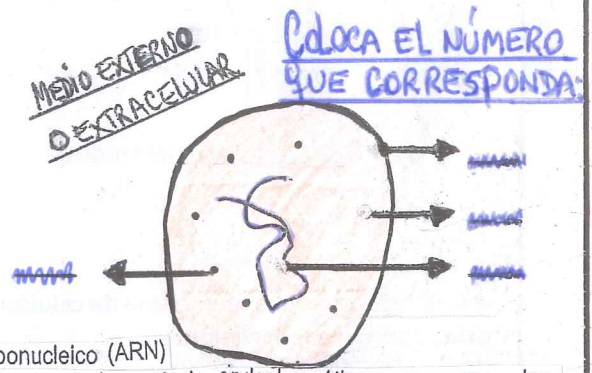 MEDIO EXTERNO
O EXTRACELULAR
COLOCA EL NÚMERO
QUE CORRESPONDA:
bonucleico (ARN)